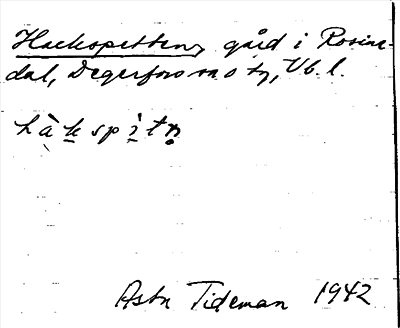 Hackspetten, gård i Rosine-
dal, Degerfors sn o tg, Vb. l.
hàkspìtn̥
Astr Tideman 1942